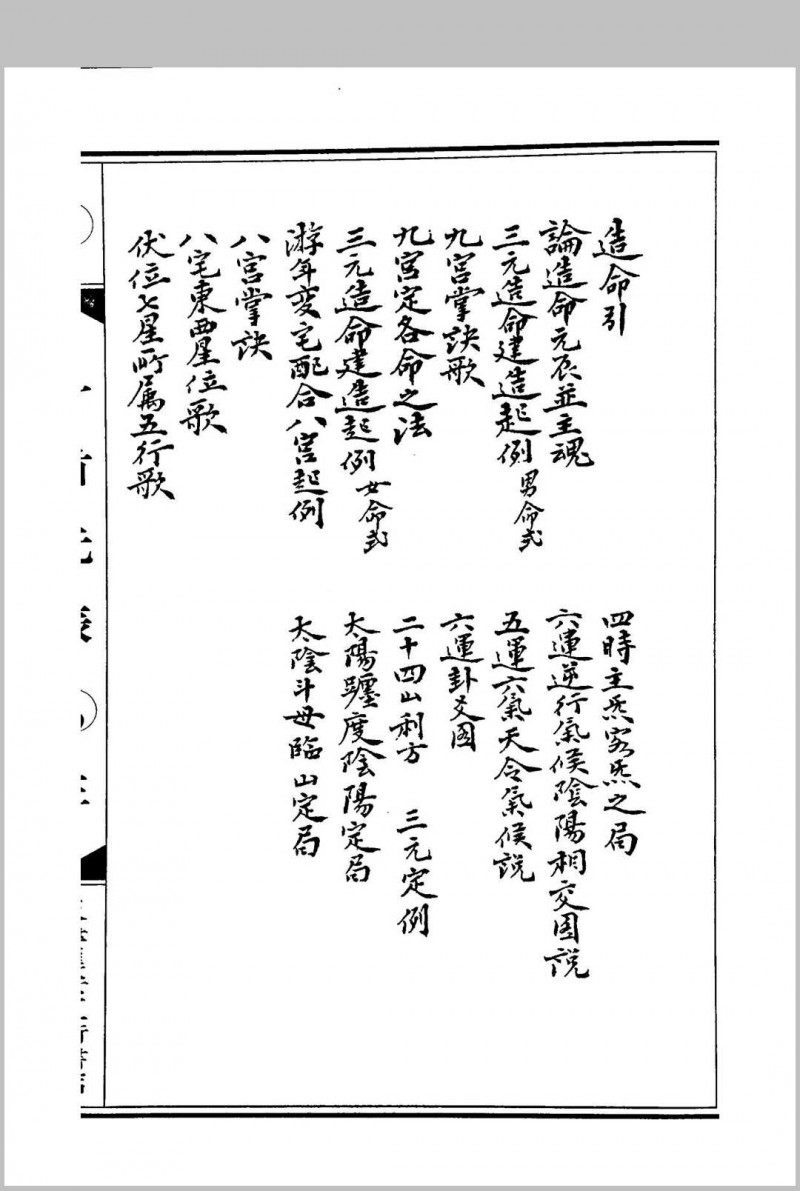 造命引
論造命元辰並主魂
三元造命建造起例 男命式
九宮掌訣歌
九宮定各命之法
三元造命建造起例 女命式
游年变宅配合八宮起例
八宮掌訣
八宅東西星位歌
伏位七星所属五行歌
四時主炁客炁之局
六運逆行氣候陰陽相交图説
五運六氣天令氣候説
六運卦爻图
二十四山利方 三元定例
太陽躔度陰陽定局
太陰斗母臨山定局